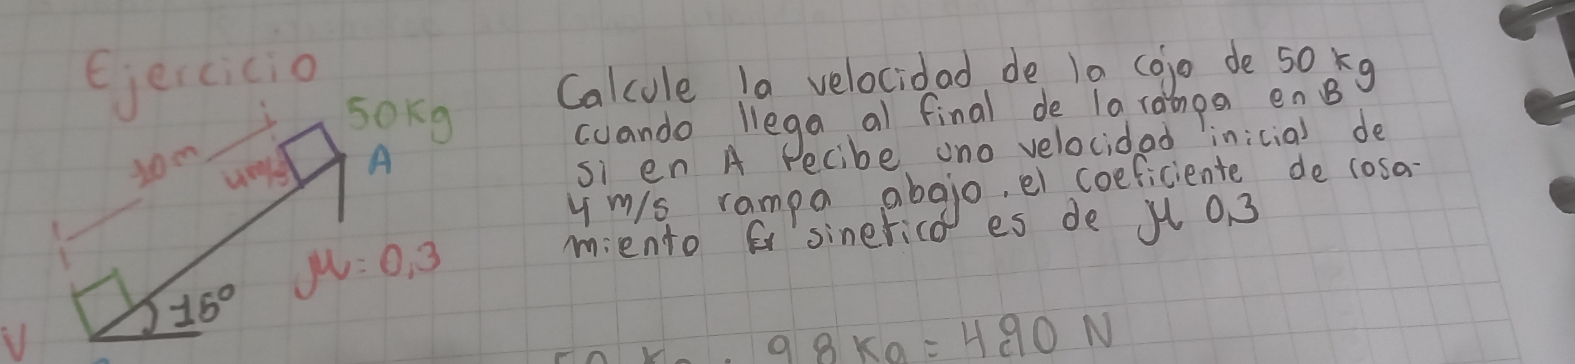 Ejercicio
50Kg
10m
4m/s
A
μ=0,3
15°
V
Calcule la velocidad de la caja de 50 kg
cuando llega al final de la rampa en B
si en A recibe una velocidad inicial de
4 m/s rampa abajo. el coeficiente de rosa-
miento sinetico es de μ 0,3
98 Kg = 490 N